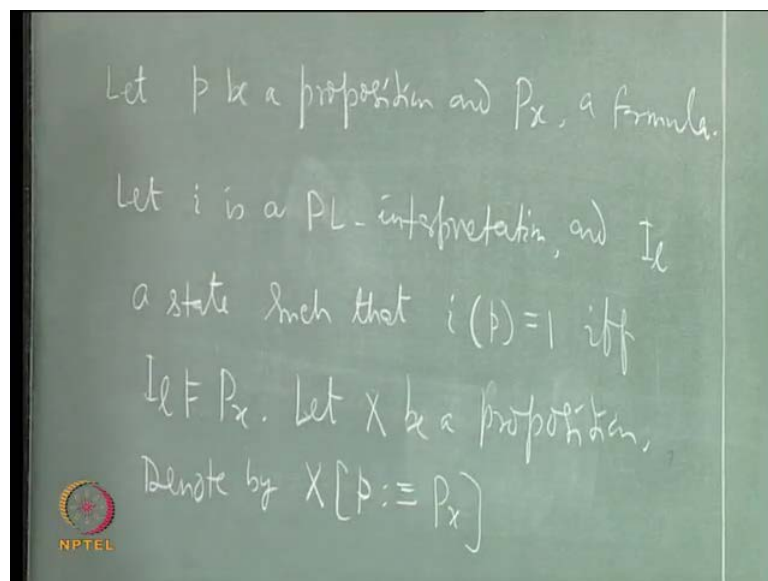 Let p be a proposition and Px, a formula.
Let i is a PL-interpretation, and Iℓ
a state such that i(p)=1 iff
Iℓ ⊨ Px. Let X be a proposition,
Denote by X[p:≡Px]
NPTEL